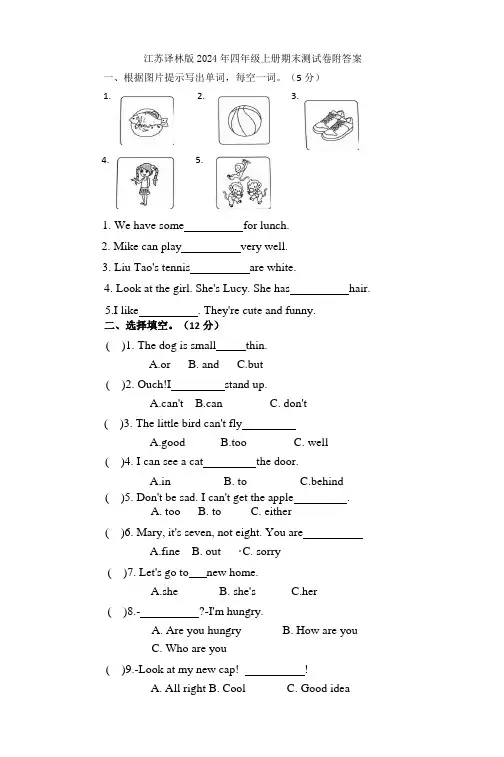 江苏译林版2024年四年级上册期末测试卷附答案
一、根据图片提示写出单词，每空一词。（5分）
1. 2. 3.
4. 5.
1. We have some__________for lunch.
2. Mike can play__________very well.
3. Liu Tao's tennis__________are white.
4. Look at the girl. She's Lucy. She has__________hair.
5.I like__________. They're cute and funny.
二、选择填空。（12分）
( )1. The dog is small_____thin.
A.or B. and C.but
( )2. Ouch!I_________stand up.
A.can't B.can C. don't
( )3. The little bird can't fly_________
A.good B.too C. well
( )4. I can see a cat_________the door.
A.in B. to C.behind
( )5. Don't be sad. I can't get the apple_________.
A. too B. to C. either
( )6. Mary, it's seven, not eight. You are__________
A.fine B. out ·C. sorry
( )7. Let's go to___new home.
A.she B. she's C.her
( )8.-__________?-I'm hungry.
A. Are you hungry B. How are you
C. Who are you
( )9.-Look at my new cap! __________!
A. All right B. Cool C. Good idea